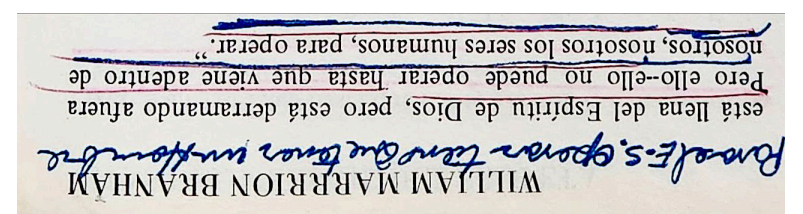 WILLIAM MARRRION BRANHAM
Para el E.S. operar tiene que tomar un Hombre
está llena del Espíritu de Dios, pero está derramando afuera
Pero ello--ello no puede operar hasta que viene adentro de
nosotros, nosotros los seres humanos, para operar.”